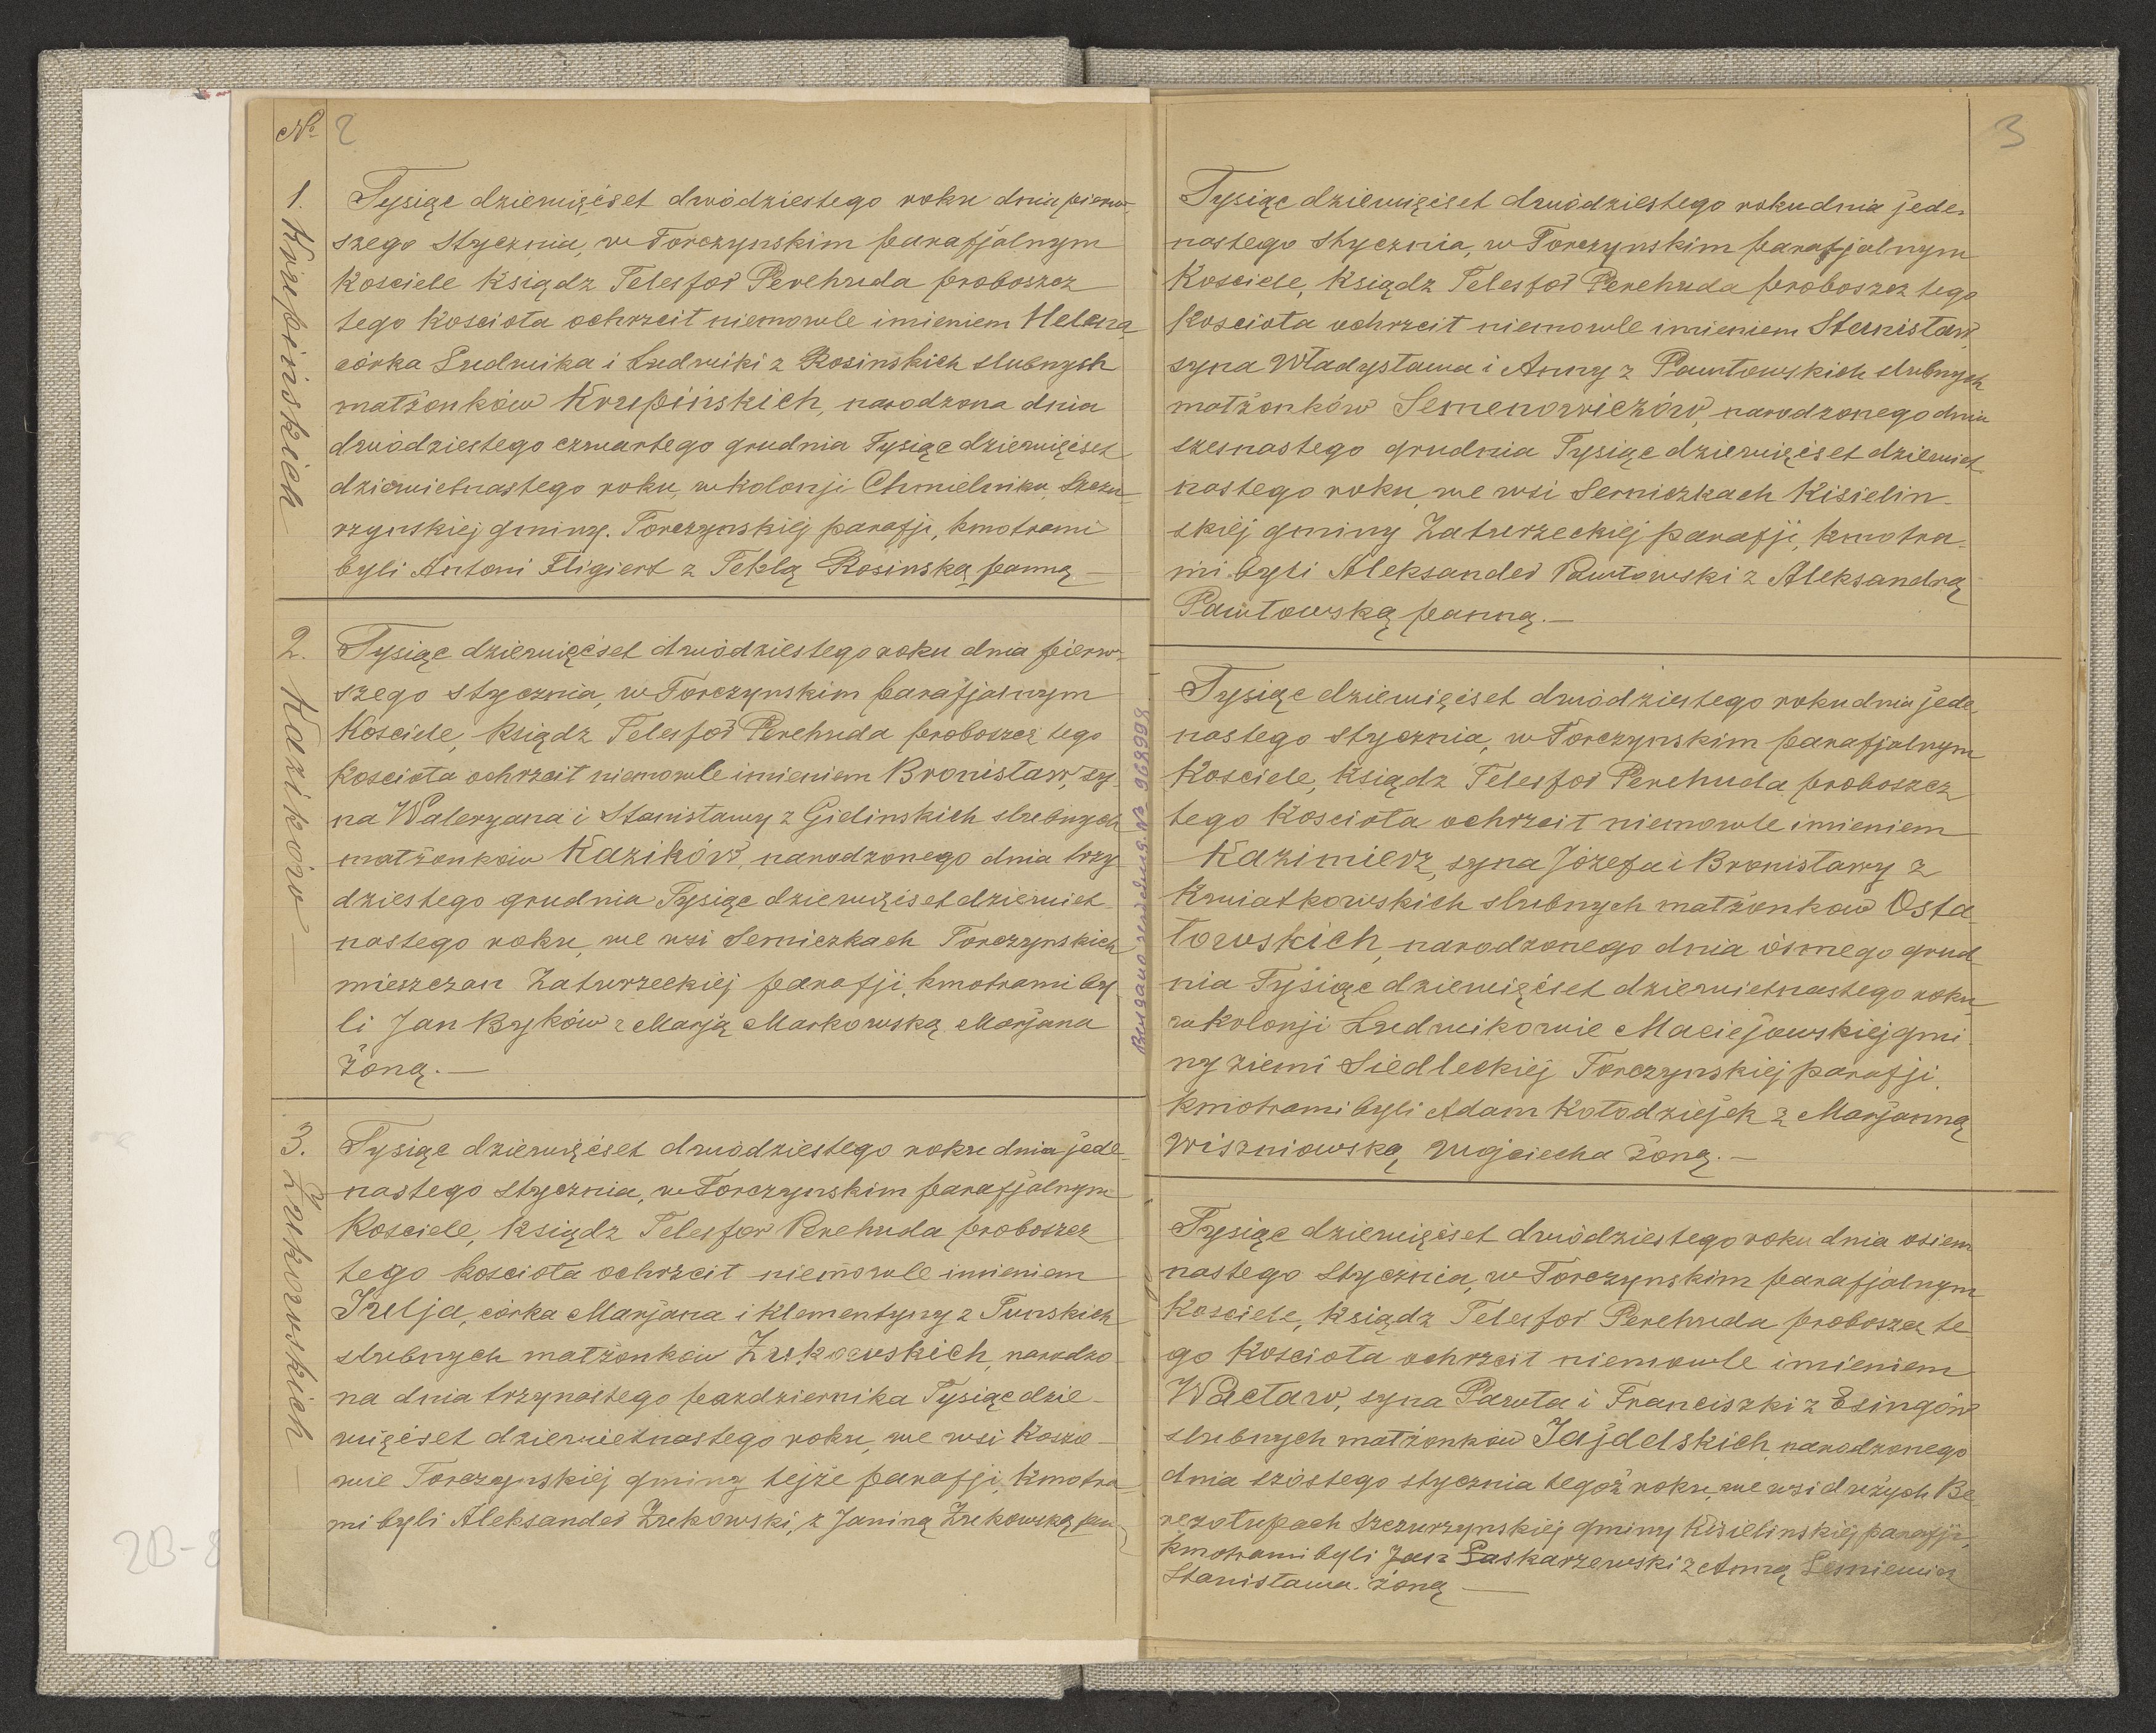 № 2
1. Krupińskich
Tysiąc dziewięćset dwódziestego roku dnia pierw-
szego Stycznia, w Torczynskim parafjalnym
Kosciele Ksiądz Telesfor Perehuda proboszcz
tego Koscioła ochrzcił niemowle imieniem Helena
córka Ludwika i Ludwiki z Rosinskich slubnych
małżonków Krupińskich, narodzona dnia
dwódziestego czwartego grudnia Tysiąc dziewięćset
dziewietnastego roku, w kolonji Chmielniku, Szczu-
rzynskiej gminy. Torczynskiéj parafji, kmotrami
byli Antoni Fligiert z Teklą Rosinską panną —
2. Kazików —
Tysiąc dziewięćset dwódziestego roku dnia pierw-
szego stycznia, w Torczynskim parafjalnym
Kosciele, Ksiądz Telesfor Perehuda proboszcz tego
Koscioła ochrzcił niemowle imieniem Bronisław, sy-
na Waleryana i Stanisławy z Gielinskich slubnych
małżonków Kazików, narodzonego dnia trzy
dziestego grudnia Tysiąc dziewięćset dziewiet
nastego roku, we wsi Serniczkach Torczynskich
mieszczan Zaturzeckiej parafji, kmotrami by
li Jan Byków z Marją Markowską Marjana
żoną. —
3. Żukowskich —
Tysiąc dziewięćset dwódziestego roku dnia jede-
nastego stycznia, w Torczynskim parafjalnym
Kosciele, Ksiądz Telesfor Perehuda proboszcz
tego kosciola ochrzcił niemowle imieniem
córka Marjana i Klementyny z Tunskich
slubnych małżonków Żukowskich, narodzo-
na dnia trzynastego pazdziernika Tysiąc dzie-
więćset dziewietnastego roku, we wsi
Torczynskiéj gminy tejże parafji, Kmotra
mi byli Aleksander Żukowski, z Janiną Żukowską pan
3
Tysiąc dziewięćset dwódziestego roku dnia jede-
nastego stycznia, w Torczynskim parafjalnym
Kosciele, Ksiądz Telesfor Perehuda proboszcz tego
Kosciola ochrzcił niemowle imieniem Stanisław,
syna Władysława i Anny z Pawłowskich slubnych
małżonków Semenowiczów, narodzonego dnia
szesnastego grudnia Tysiąc dziewięćset dziewiet
nastego roku, we wsi Serniczkach Kisielin-
skiéj gminy Zaturzeckiéj parafji, kmotra-
mi byli Aleksander Pawłowski z Aleksandrą
Pawłowską panną. —
Tysiąc dziewięćset dwódziestego roku dnia jede
nastego stycznia, w Torczynskim parafjalnym
Kosciele, Ksiądz Telesfor Perehuda proboszcz
tego Kosciola ochrzcił niemowle imieniem
Kazimierz, syna Józefa i Bronisławy z
Kwiatkowskich slubnych małżonków Osta
łowskich, narodzonego dnia ósmego grud
nia Tysiąc dziewięćset dziewietnastego roku
w kolonji Ludwikowie Maciejowskiej gmi
ny ziemi Siedleckiéj Torczynskiéj parafji
kmotrami byli Adam Kołodziejek z Marjanną
Wiszniowską, Wojciecha żoną. —
Tysiąc dziewięćset dwódziestego roku dnia osiem
nastego stycznia, w Torczynskim parafjalnym
Kosciele, Ksiądz Telesfor Perehuda proboszcz te
go Kosciola ochrzcił niemowle imieniem
Wacław, syna Pawła i Franciszki z Esingów
slubnych małżonków Jajdelskich, narodzonego
dnia szóstego stycznia tegoż roku, we wsi dużych Be
rezołupach Szczurzynskiéj gminy Kisielinskiéj parafji,
kmotrami byli Jan Paskarzewski z Anną
Stanisława żoną —